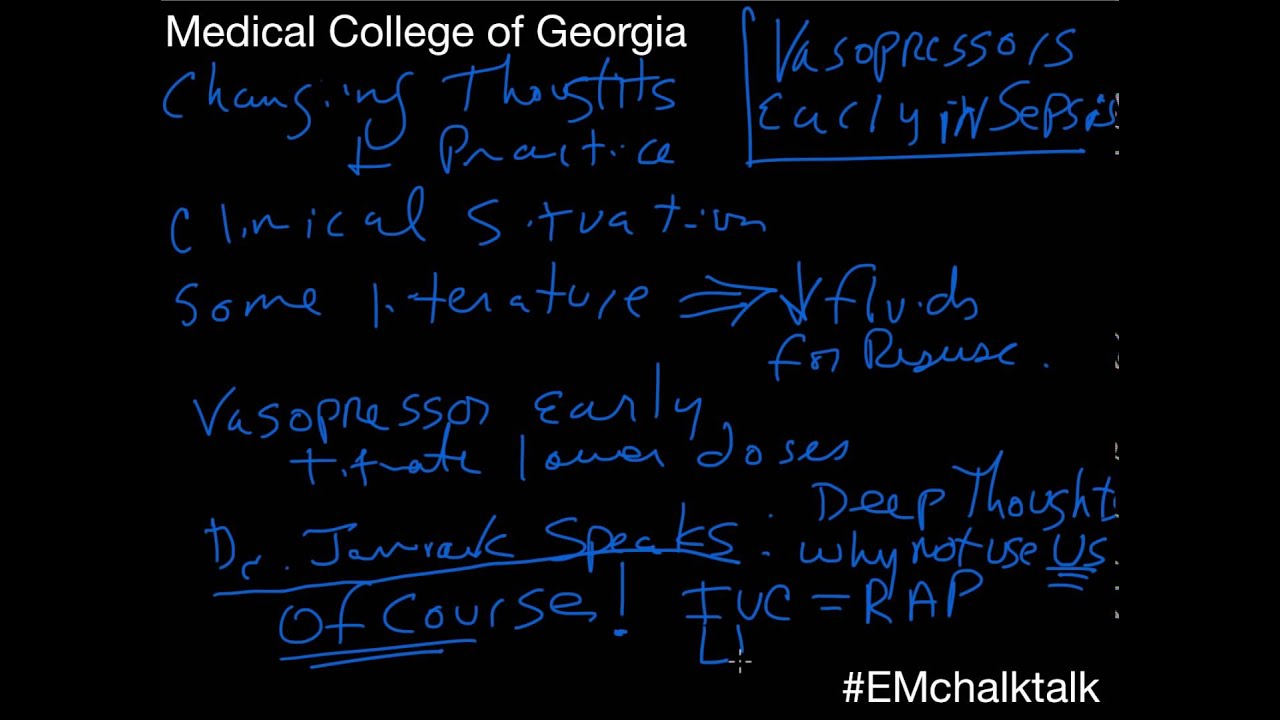 Medical College of Georgia
Vasopressors
Early in Sepsis
Changing Thoughts
+ Practice
Clinical Situation
Some literature ⇒ ↓ fluids
for Resusc.
Vasopressor Early
titrate lower doses
Deep Thought
Dr. Speaks : why not use US
Of Course! IVC = RAP
#EMchalktalk